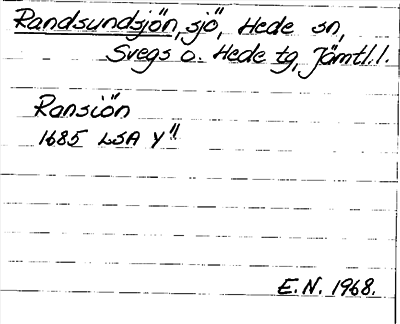 Randsundsjön, sjö, Hede sn,
Svegs o. Hede tg, Jämtl. l.
Ransiön
1685 LSA Y"
E.N. 1968.